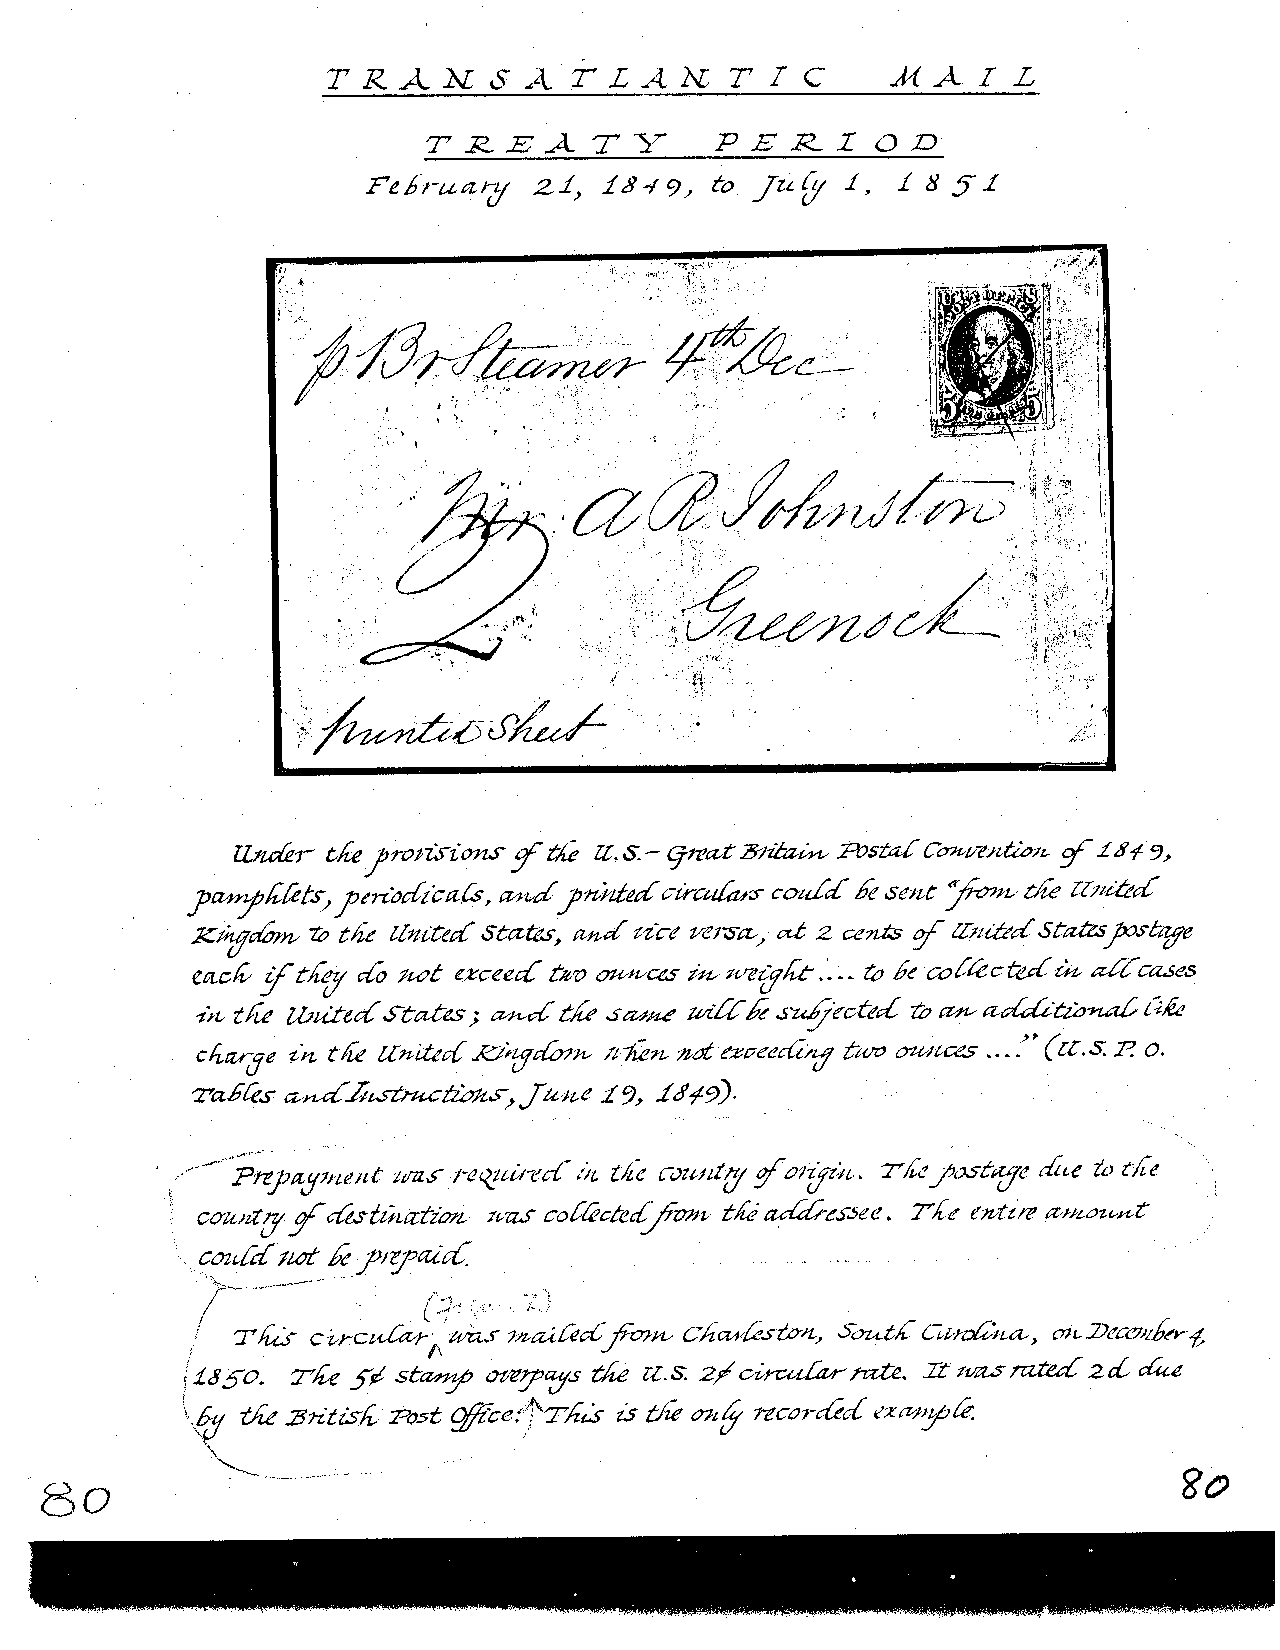 TRANSATLANTIC MAIL
TREATY PERIOD
February 21, 1849, to July 1, 1851
p Br Steamer 4th Dec
Mr. A R Johnston
2
Greenock
printed Sheet
Under the provisions of the U.S.- Great Britain Postal Convention of 1849,
pamphlets, periodicals, and printed circulars could be sent "from the United
Kingdom to the United States, and vice versa, at 2 cents of United States postage
each if they do not exceed two ounces in weight .... to be collected in all cases
in the United States; and the same will be subjected to an additional like
charge in the United Kingdom when not exceeding two ounces ...." (U.S. P. O.
Tables and Instructions, June 19, 1849).
Prepayment was required in the country of origin. The postage due to the
country of destination was collected from the addressee. The entire amount
could not be prepaid.
This circular was mailed from Charleston, South Carolina, on December 4,
1850. The 5¢ stamp overpays the U.S. 2¢ circular rate. It was rated 2d due
by the British Post Office. This is the only recorded example.
80
80